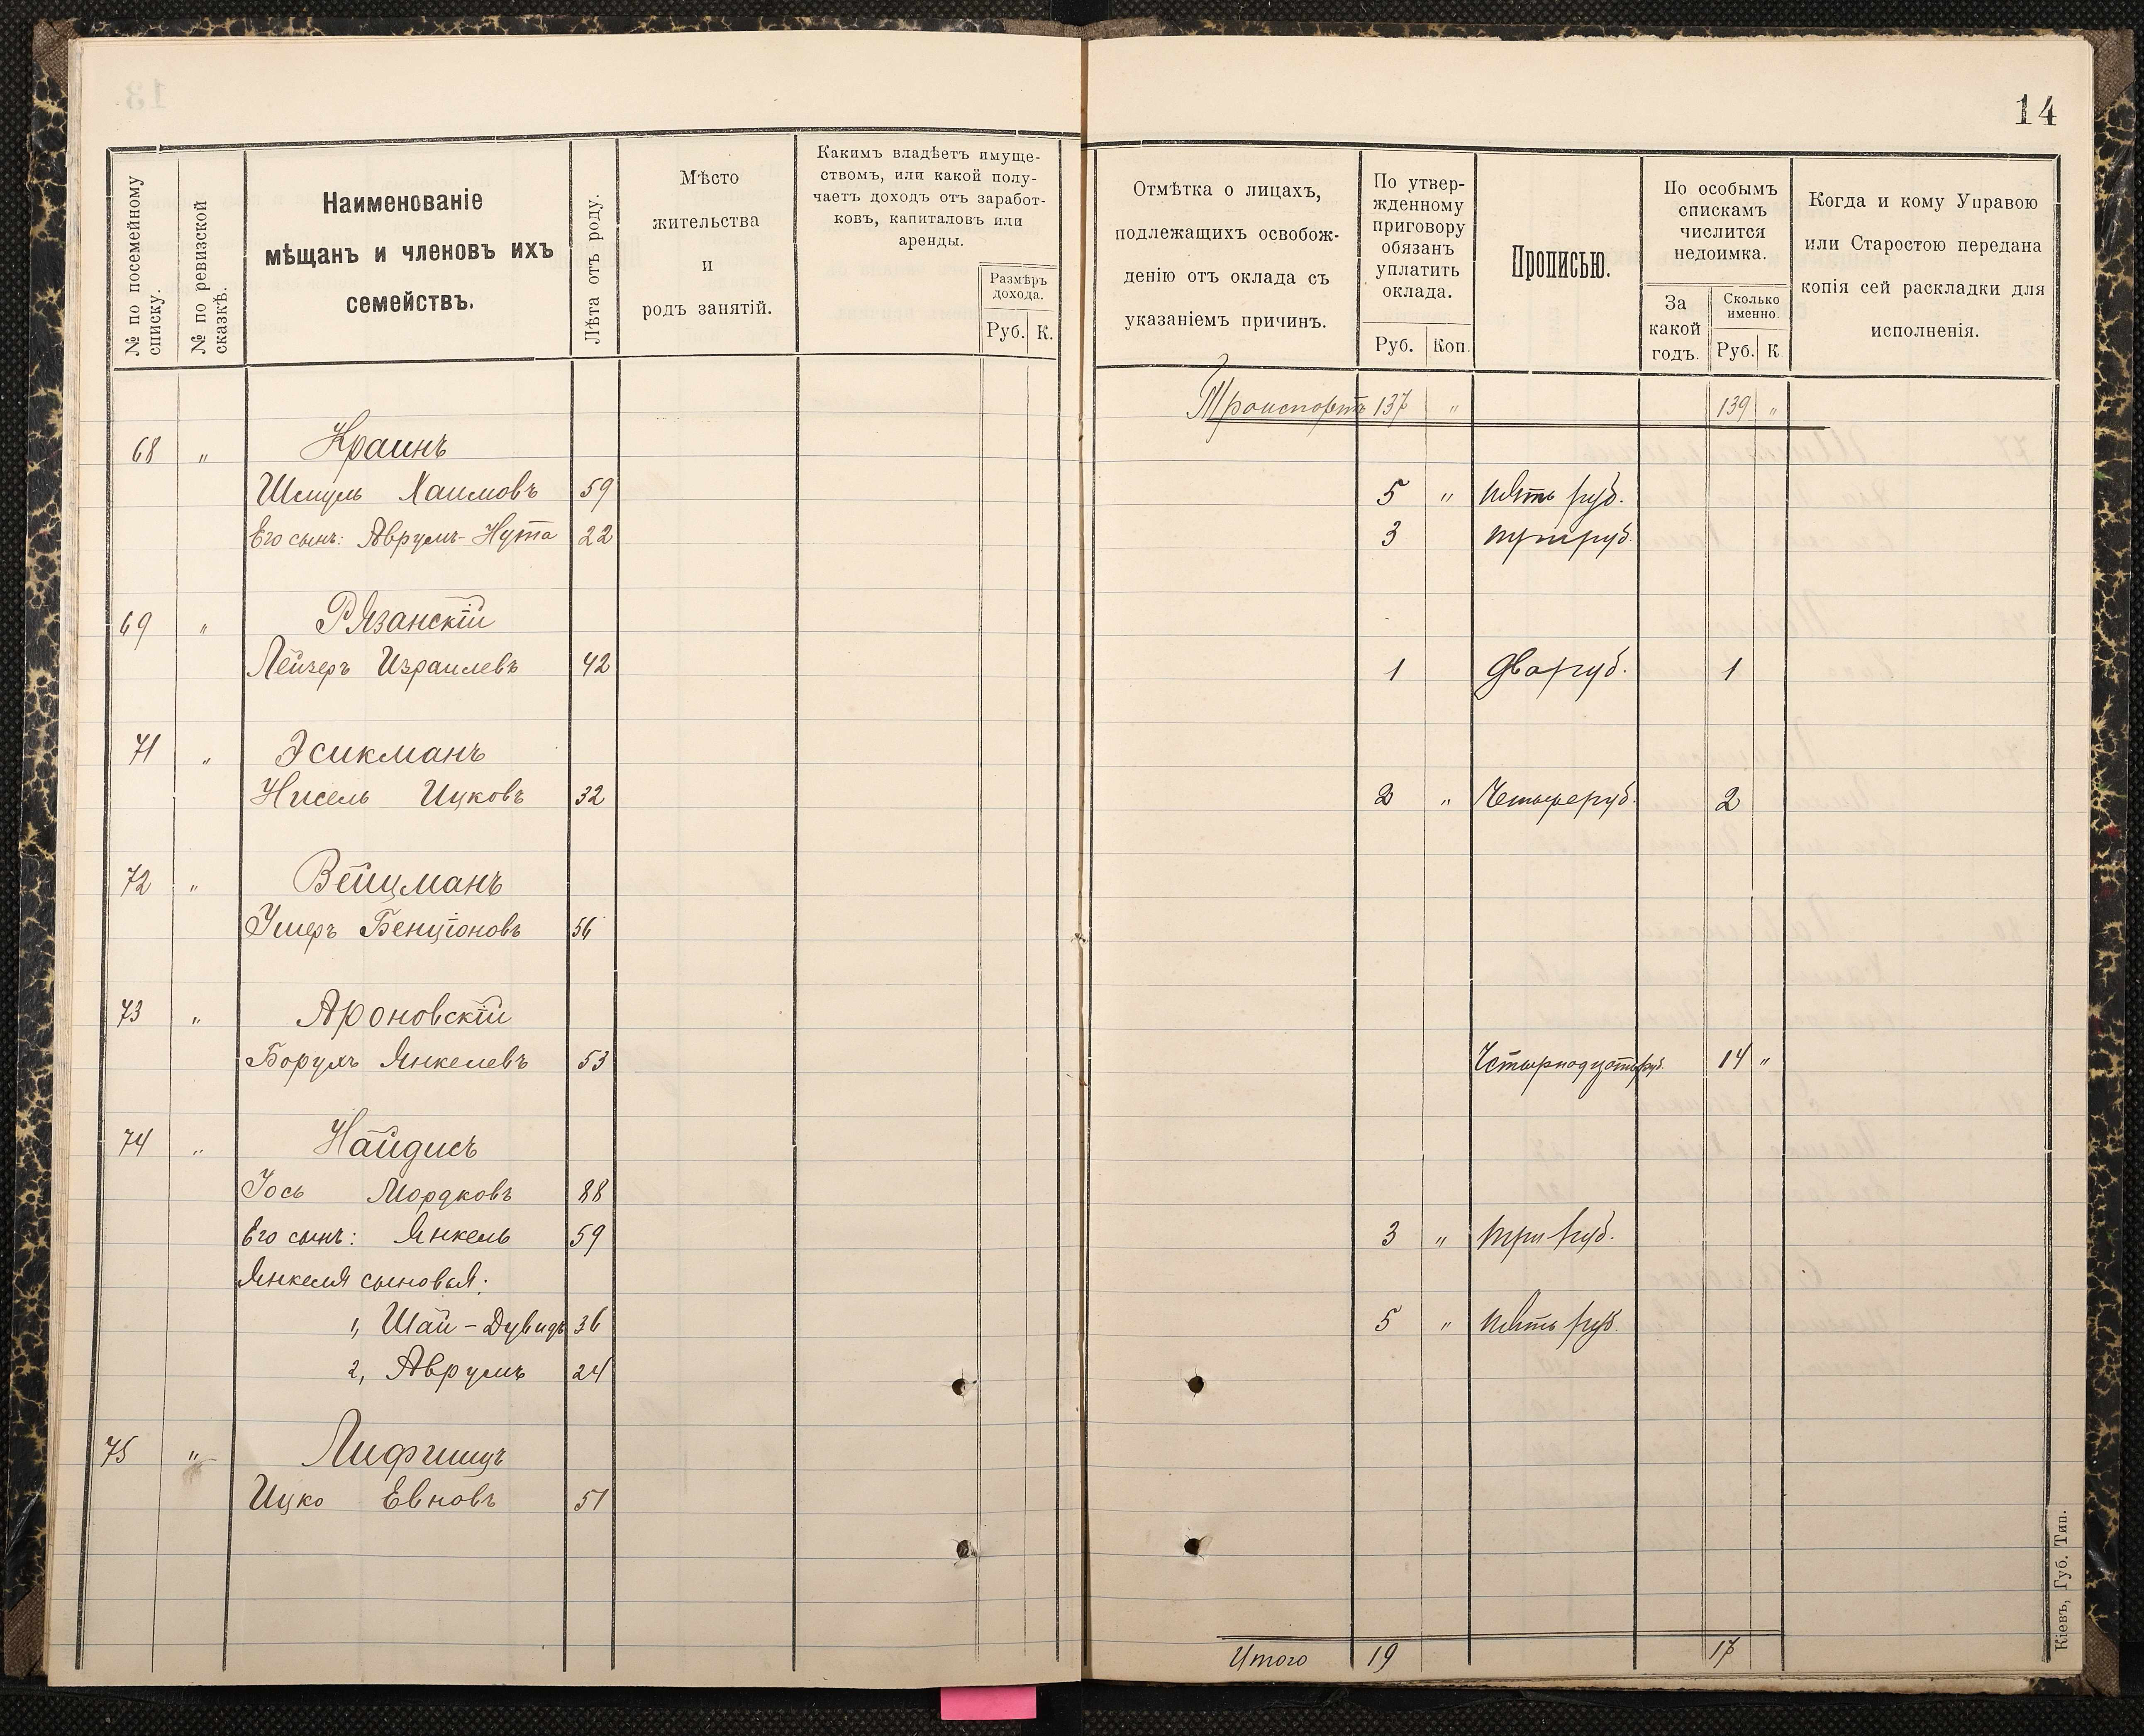 14
№ по посемейному списку.
№ по ревизской сказкѣ.
Наименованіе
мѣщанъ и членовъ ихъ
семействъ.
Лѣта отъ роду.
Мѣсто
жительства
и
родъ занятій.
Какимъ владѣетъ имуще-
ствомъ, или какой полу-
чаетъ доходъ отъ заработ-
ковъ, капиталовъ или
аренды.
Размѣръ
дохода.
Руб. К.
Отмѣтка о лицахъ,
подлежащихъ освобож-
денію отъ оклада съ
указаніемъ причинъ.
По утвер-
жденному
приговору
обязанъ
уплатить
оклада.
Руб. Коп.
Прописью.
По особымъ
спискамъ
числится
недоимка.
За
какой
годъ.
Сколько
именно.
Руб. К
Когда и кому Управою
или Старостою передана
копія сей раскладки для
исполненія.
Транспортъ 137 " 139 "
68 " Краинъ
Шмуль Хаимовъ 59 5 " пять руб.
Его сынъ: Аврумъ-Нута 22 3 три руб.
69 " Рязанскій
Лейзеръ Израилевъ 42 1 два руб. 1
71 " Эсикманъ
Нисель Ицковъ 32 2 " Четыре руб. 2
72 " Вейцманъ
Ушеръ Бенціоновъ 56
73 " Ароновскій
Борухъ Янкелевъ 53 Четырнадцать руб. 14 "
74 " Найдисъ
Іось Мордковъ 88
Его сынъ: Янкель 59 3 " три руб.
Янкеля сыновья:
1, Шай-Дувидъ 36 5 " пять руб.
2, Аврумъ 24
75 " Лифшицъ
Ицко Евновъ 51
Итого 19 17
Кіевъ, Губ. Тип.